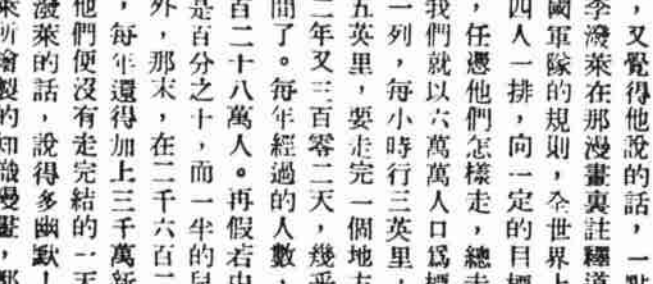 ，又覺得他說的話，一點
李潑萊在那漫畫裏註釋道
國軍隊的規則，全世界上
四人一排，向一定的目標
，任憑他們怎樣走，總走
我們就以六萬萬人口爲標
一列，每小時行三英里，
五英里，要走完一個地
二年又三百零二天，幾乎
間了。每年經過的人數，
百二十八萬人。再假若中
是百分之十，而一半的兒
外，那末，在二千六百二
，每年還得加上三千萬新
他們便沒有走完結的一天
潑萊的話，說得多幽默！
所繪製的知識漫畫，那